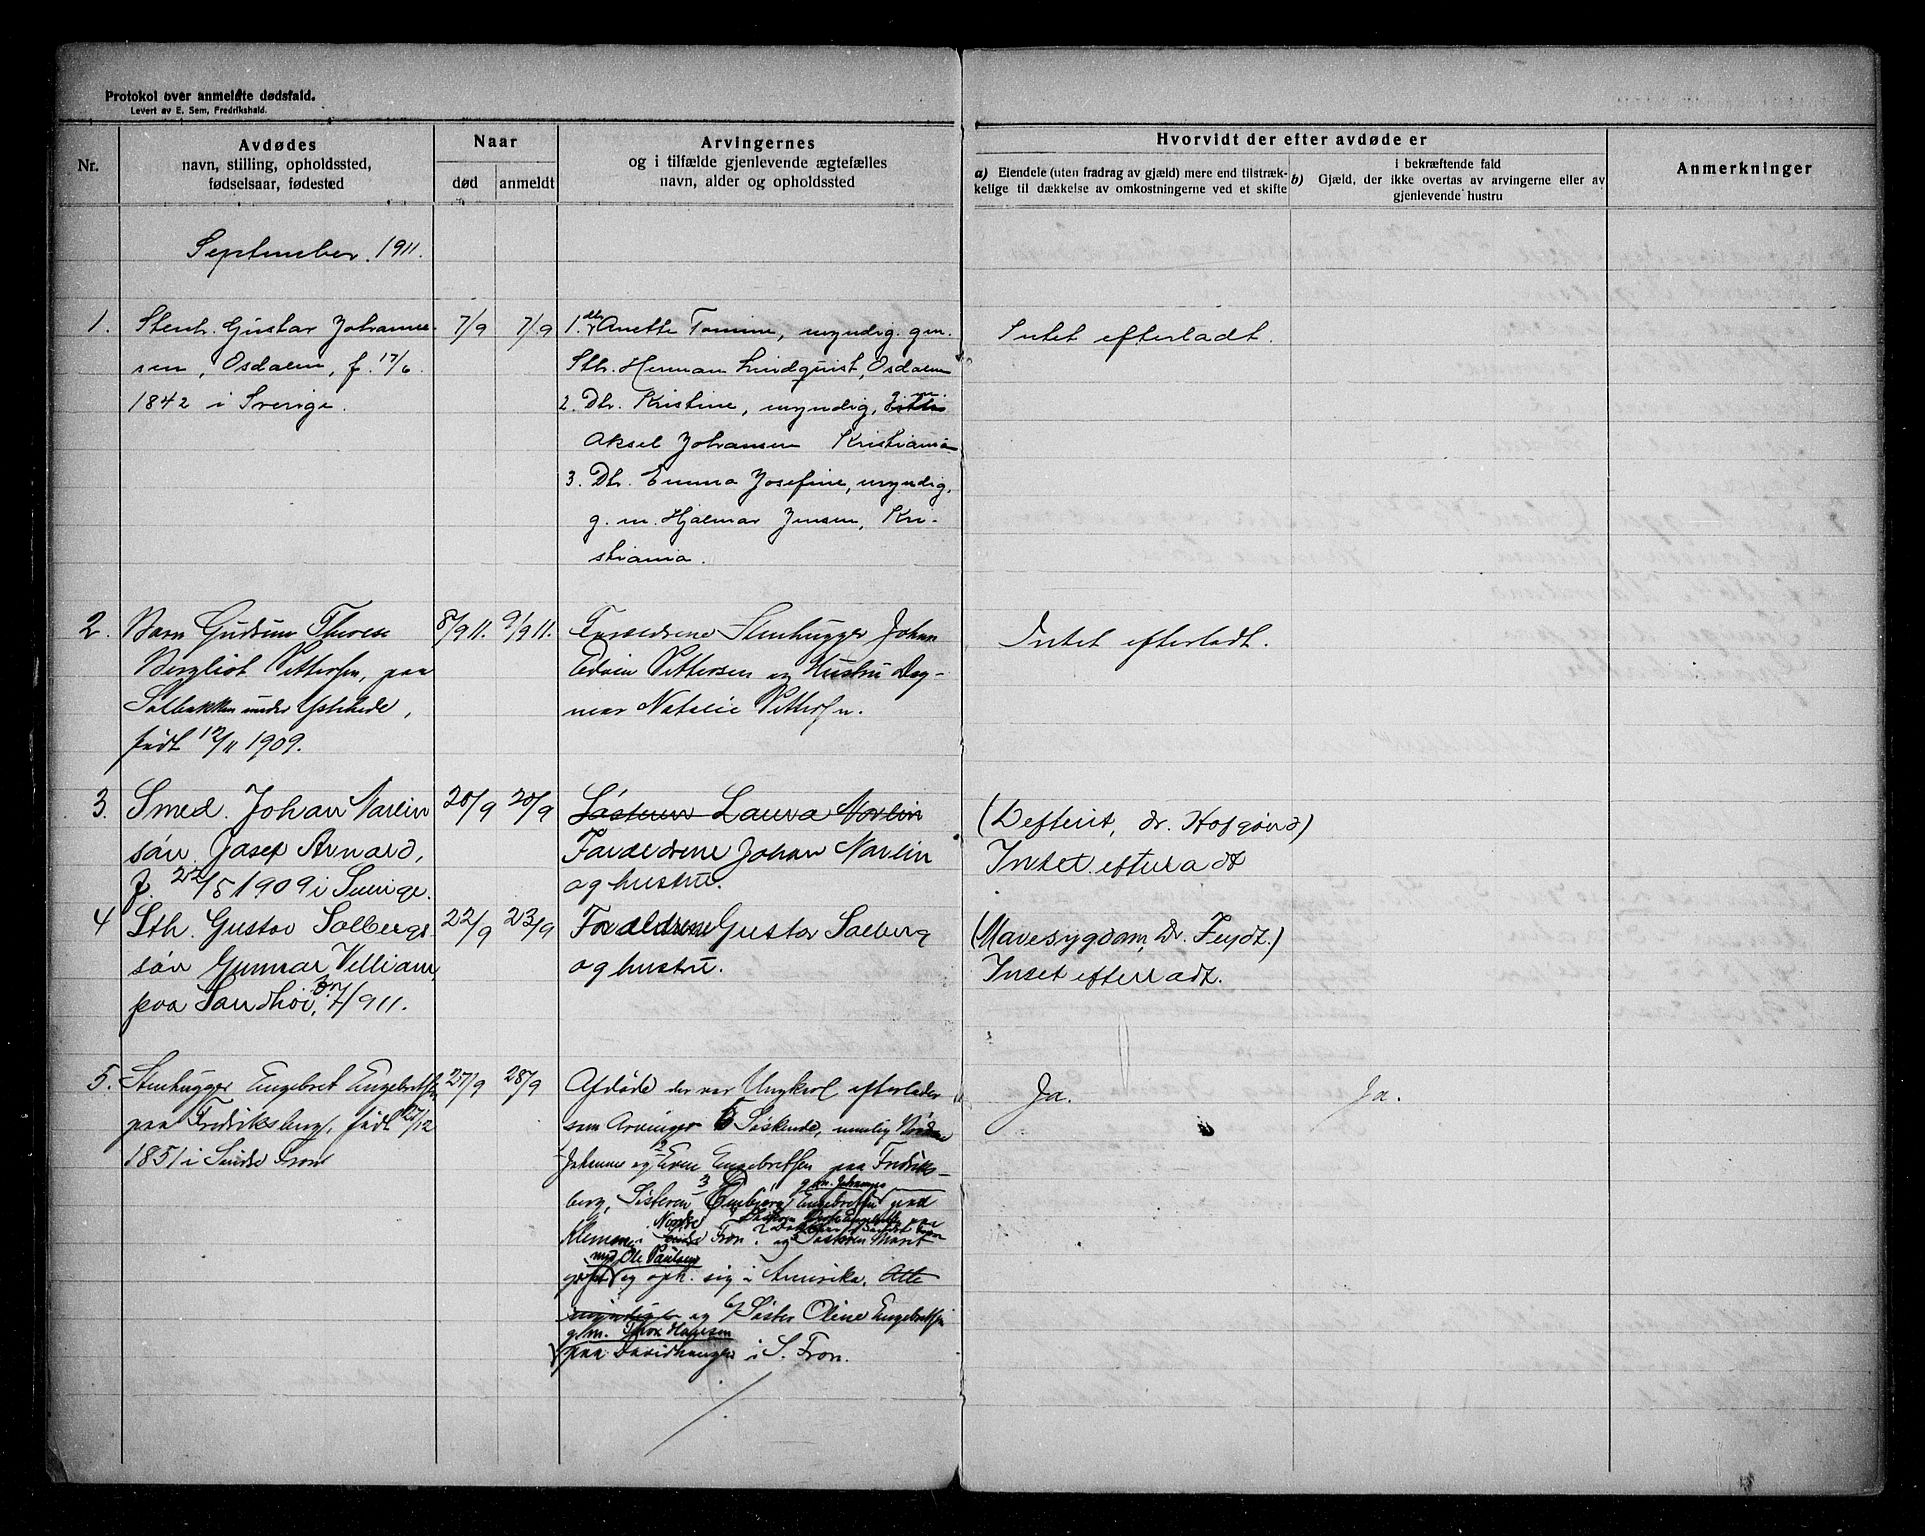 Protokol over anmeldte dødsfald.
Levert av E. Sem, Fredrikshald.
Nr.
Avdødes
navn, stilling, opholdssted,
fødselsaar, fødested
Naar
død
anmeldt
Arvingernes
og i tilfælde gjenlevende ægtefælles
navn, alder og opholdssted
Hvorvidt der efter avdøde er
a) Eiendele (uten fradrag av gjæld) mere end tilstræk-
kelige til dækkelse av omkostningerne ved et skifte
b)
i bekræftende fald
Gjæld, der ikke overtas av arvingerne eller av
gjenlevende hustru
Anmerkninger
September. 1911.
1.
Stenh. Gustav Johanne-
sen, Osdalen, f. 17/6
1842 i Sverige.
7/9
7/9
1. Anette Tomine, myndig. gm.
Sth. Herman Lindquist, Osdalen
2. Dtr. Kristine, myndig,
Aksel Johansen Kristiania
3. Dtr. Emma Josefine, myndig,
g. m. Hjalmar Jensen, Kri-
stiania.
Intet efterladt.
2.
Barn Gudrun Therese
Bergliot Pettersen, paa
Solbakken under
født 12/11 1909.
8/9 11.
9/9 11.
Forældrene Stenhugger Johan
Edvin Pettersen og Hustru Dag-
mar Natalie Pettersen.
Intet efterladt.
3.
Smed. Johan Narlin
søn. Josef Arnard,
f. 22/5 1909 i Sverige.
20/9
20/9
Søsteren Laura Norlin
Forældrene Johan Narlin
og hustru.
(Defterit, dr. Hofgaard)
Intet efterladt
4
Sth. Gustav Solbergs
søn Gunnar Villiam,
paa Sandhøi, 7/911.
22/9
23/9
Forældrene Gustav Solberg
og hustru.
(Mavesygdom, Dr. Feydt.)
Intet efterladt.
5.
Stenhugger Engebret Engebretsen
paa Fredriksberg, født 27/12
1851 i Søndre Fron
27/9
28/9
Afdøde der var Ungkarl efterlader
som Arvinger 6 Søskende, nemlig Brødrene
Johannes og 2 Even Engebretsen paa Fredriks-
berg, Søsteren 3 g. m. Johannes Engebretsen paa
Nordre Fron. og Søsteren Marit
Ole Paulsen
og oph. sig i Amerika. Alle
myndige og 6/ Søster Oline Engebretsen
g. m. Thor Hansen
paa i S. Fron.
Ja.
Ja.